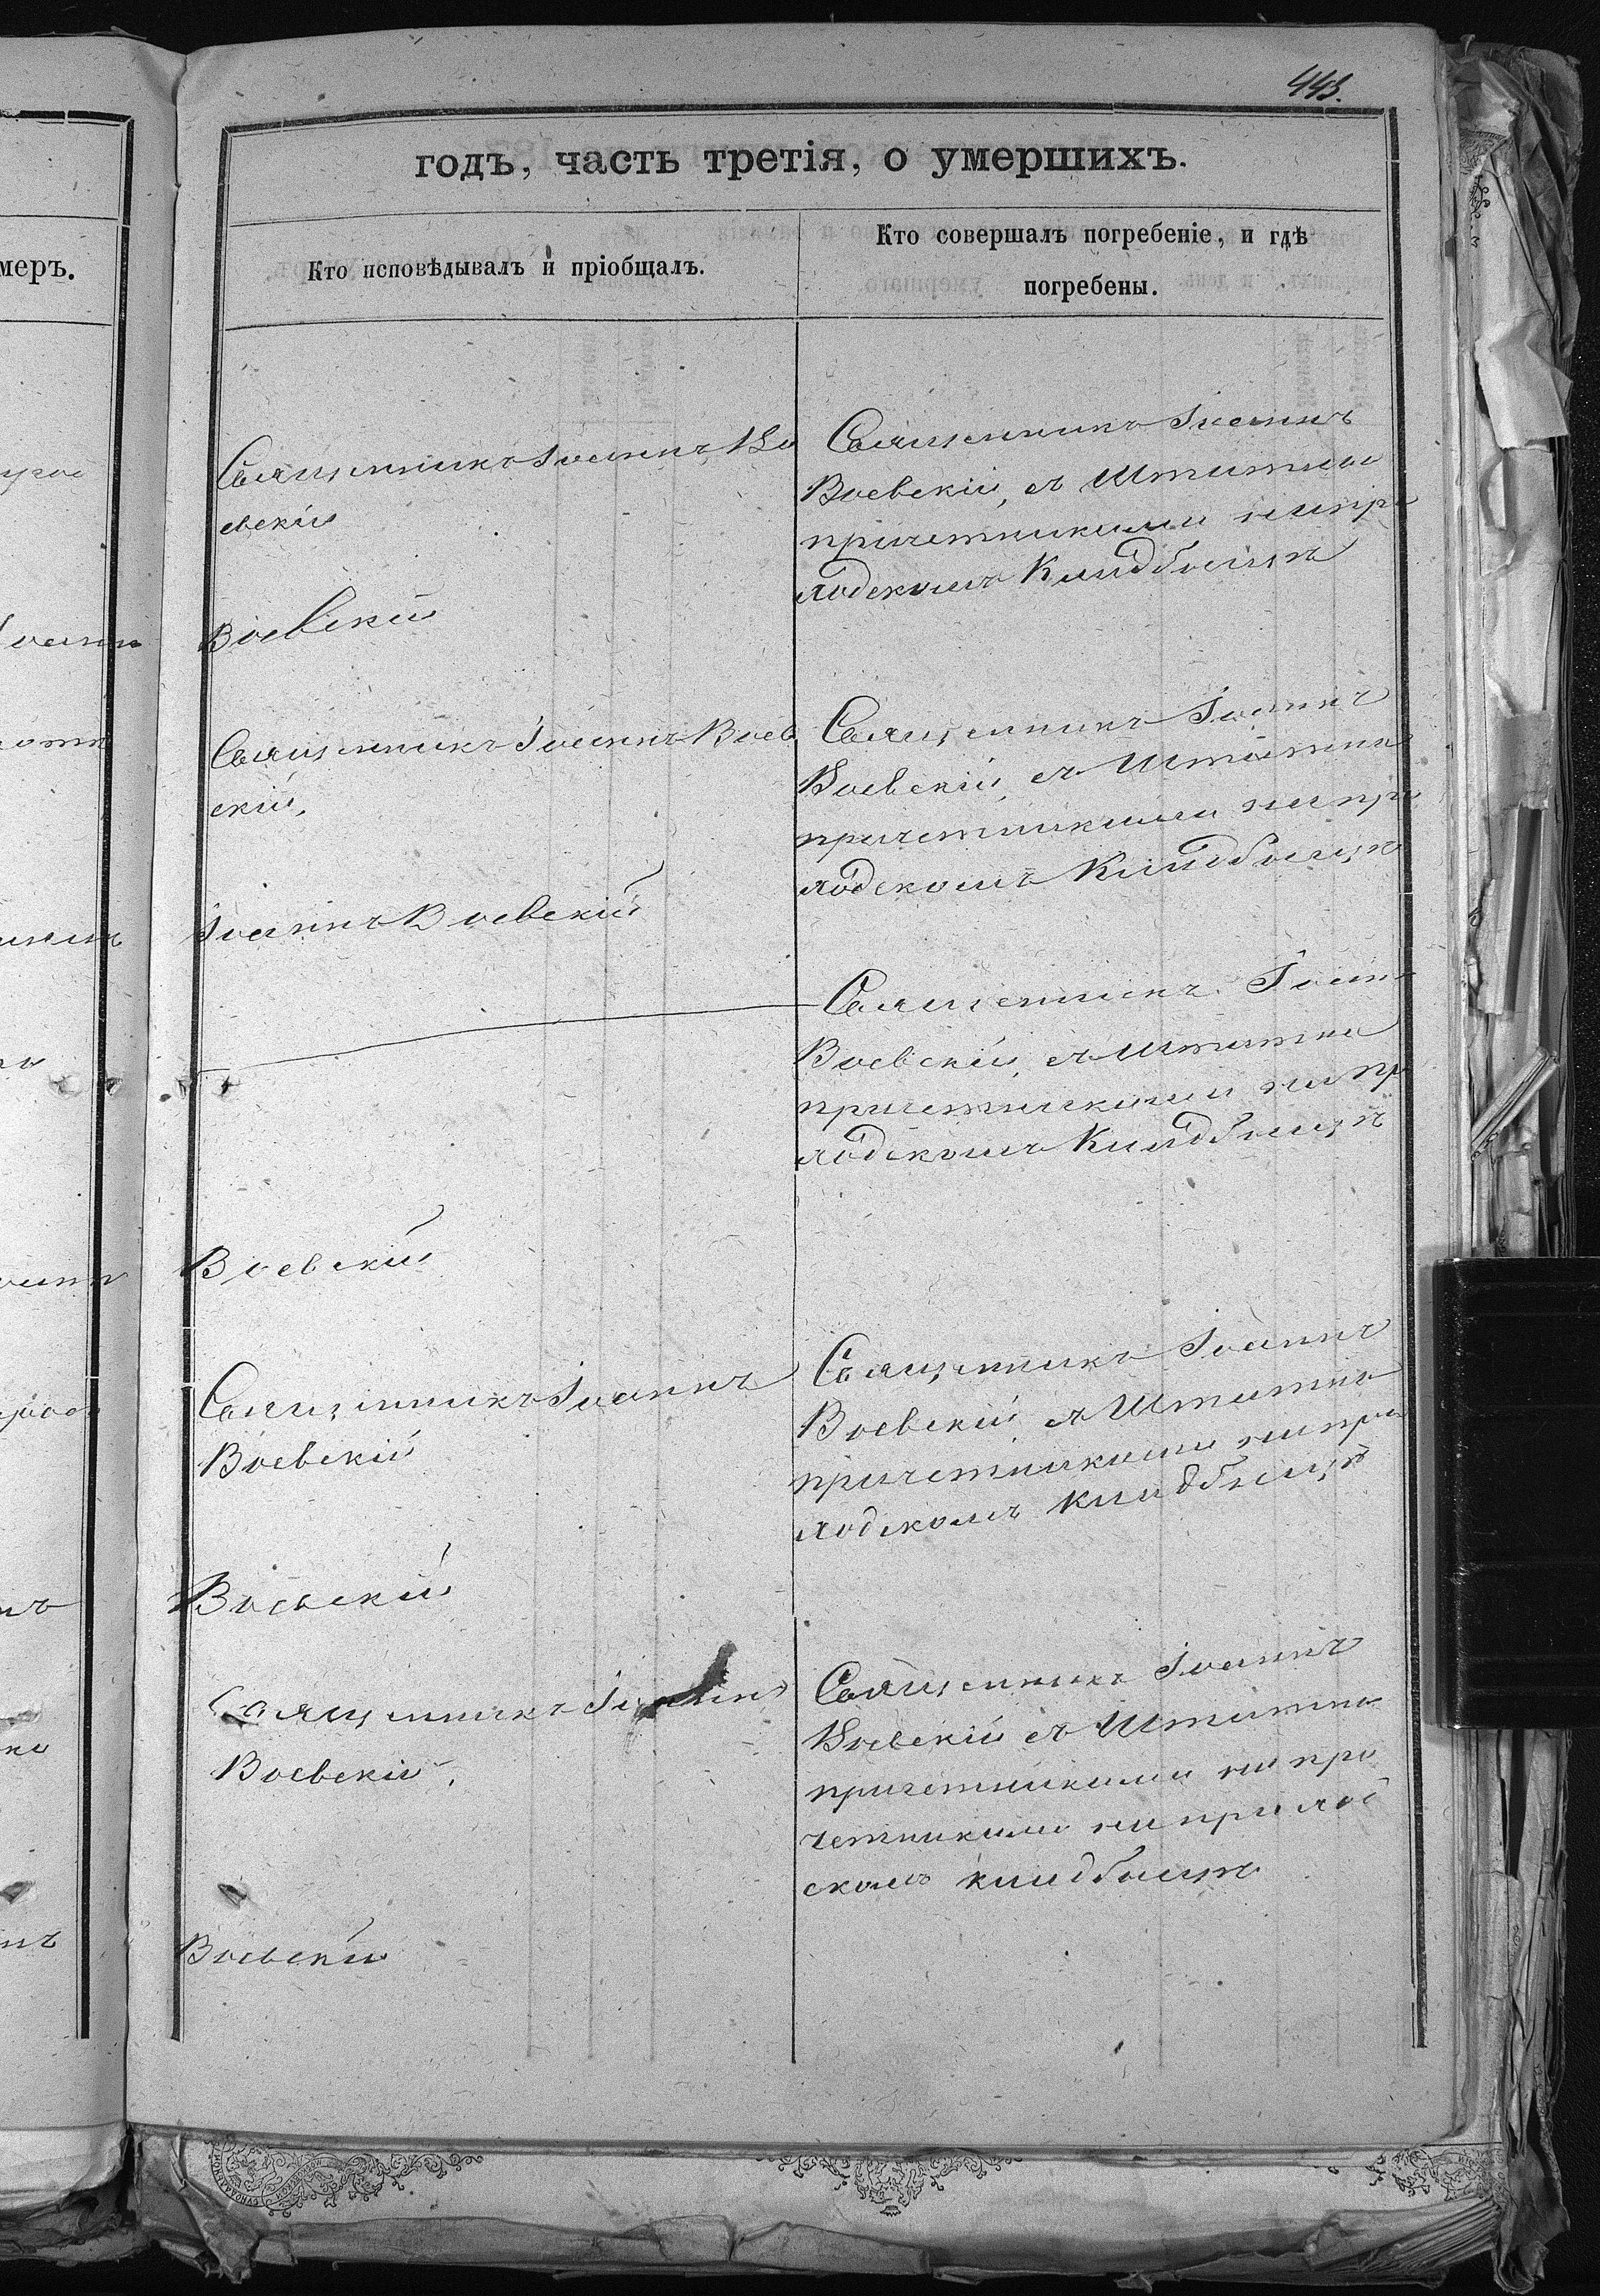 443.
годъ, часть третія, о умершихъ.
меръ.
Кто исповѣдывалъ и пріобщалъ.
Кто совершалъ погребеніе, и гдѣ
погребены.
Священникъ Іоаннъ Во
евскій
Священникъ Іоаннъ
Воевскій, съ Штатны
причетниками на при
ходскомъ Кладбищѣ
Воевскій
Священникъ Іоаннъ Воев
скій.
Священникъ Іоаннъ
Воевскій, съ Штатны
причетниками на при
ходскомъ Кладбищѣ
Іоаннъ Воевскій
Священникъ Іоанн
Воевскій, съ Штатны
причетниками на пр
ходскомъ Кладбищѣ
Воевскій
Священникъ Іоаннъ
Воевскій
Священникъ Іоаннъ
Воевскій, съ Штатны
причетниками на при
ходскомъ кладбищѣ
Воевскій
Священникъ Іоаннъ
Воевскій.
Священникъ Іоаннъ
Воевскій съ Штатны
причетниками на при
четниками на приход
скомъ кладбищѣ
Воевскій